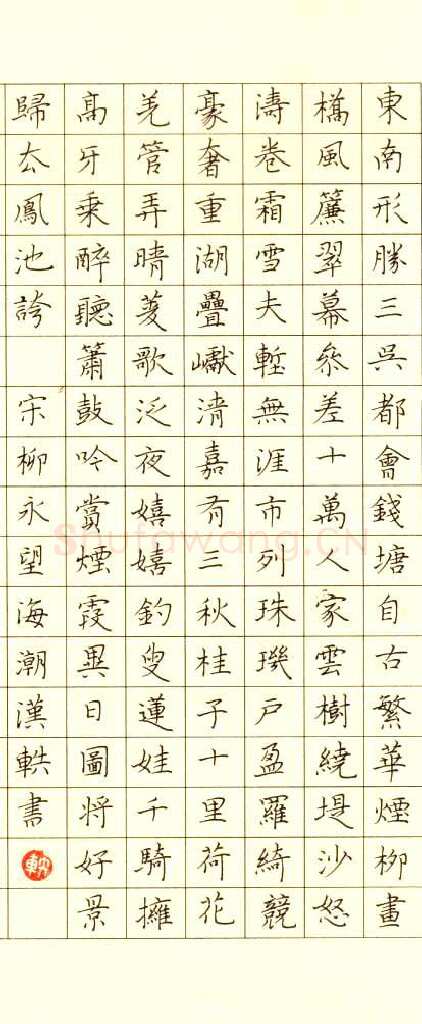 東南形勝三呉都會錢塘自古繁華煙柳畫
橋風簾翠幕參差十萬人家雲樹繞堤沙怒
濤卷霜雪夫塹無涯市列珠璣戶盈羅綺競
豪奢重湖疊巘清嘉有三秋桂子十里荷花
羌管弄晴菱歌泛夜嬉嬉釣叟蓮娃千騎擁
高牙乘醉聽簫鼓吟賞煙霞異日圖将好景
歸去鳳池誇 宋柳永望海潮漢軼書
Shufawang.CN